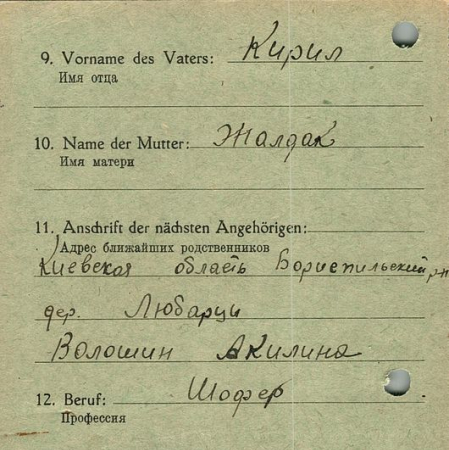 9. Vorname des Vaters: Кирил
Имя отца
10. Name der Mutter: Жалдак
Имя матери
11. Anschrift der nächsten Angehörigen:
Адрес ближайших родственников
Киевская область Бориспильский р-н
дер. Любарцы
Волошин Акилина
12. Beruf: Шофер
Профессия